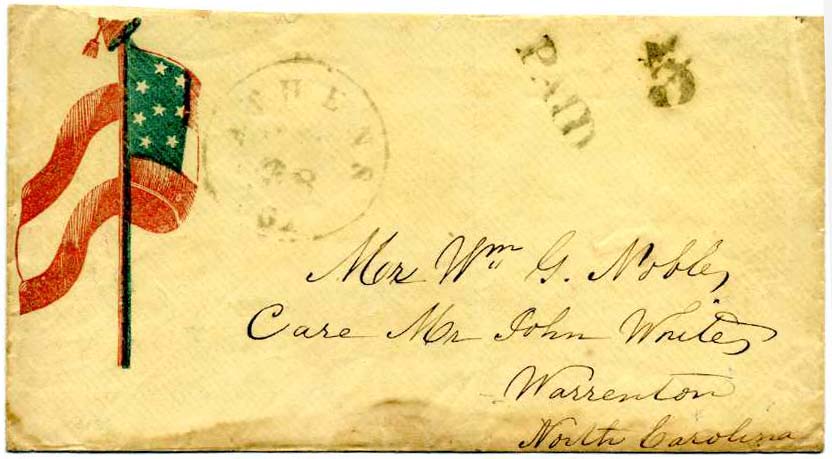 ATHENS
28
PAID
5
Mr Wm G. Nobles
Care Mr John White
Warrenton
North Carolina